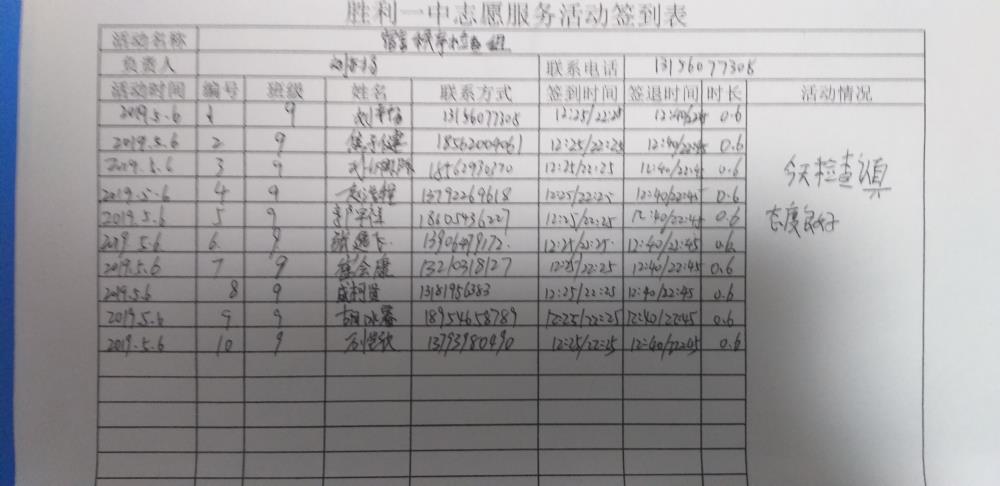 胜利一中志愿服务活动签到表
活动名称 宿舍秩序检查
负责人 联系电话 13156077308
活动时间 编号 班级 姓名 联系方式 签到时间 签退时间 时长 活动情况
2019.5.6 1 9 13156077308 12:25/22:25 12:40/22:45 0.6
2019.5.6 2 9 18562004061 12:25/22:25 12:40/22:45 0.6
2019.5.6 3 9 18562930370 12:25/22:25 12:40/22:45 0.6
2019.5.6 4 9 13792269618 12:25/22:25 12:40/22:45 0.6
2019.5.6 5 9 18605436227 12:25/22:25 12:40/22:45 0.6
2019.5.6 6 9 逸飞 13906479172 12:25/22:25 12:40/22:45 0.6
2019.5.6 7 9 崔会康 13210318127 12:25/22:25 12:40/22:45 0.6
2019.5.6 8 9 13181956383 12:25/22:25 12:40/22:45 0.6
2019.5.6 9 9 胡冰 18954658789 12:25/22:25 12:40/22:45 0.6
2019.5.6 10 9 13793980490 12:25/22:25 12:40/22:45 0.6
今天检查认真
态度良好